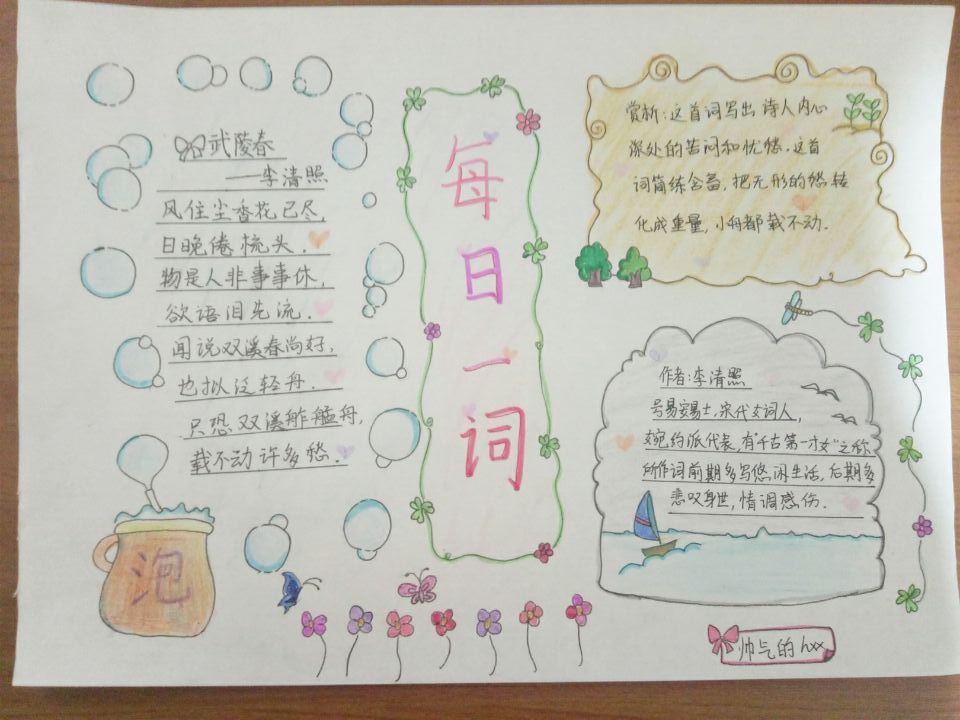 武陵春
——李清照
风住尘香花已尽，
日晚倦梳头．
物是人非事事休，
欲语泪先流．
闻说双溪春尚好，
也拟泛轻舟．
只恐双溪舴艋舟，
载不动许多愁．
泡
每日一词
赏析：这首词写出诗人内心
深处的苦闷和忧愁．这首
词简练含蓄，把无形的愁转
化成重量，小舟都载不动．
作者：李清照
号易安居士，宋代女词人，
婉约派代表，有“千古第一才女”之称
所作词前期多写悠闲生活，后期多
悲叹身世，情调感伤．
帅气的hxx